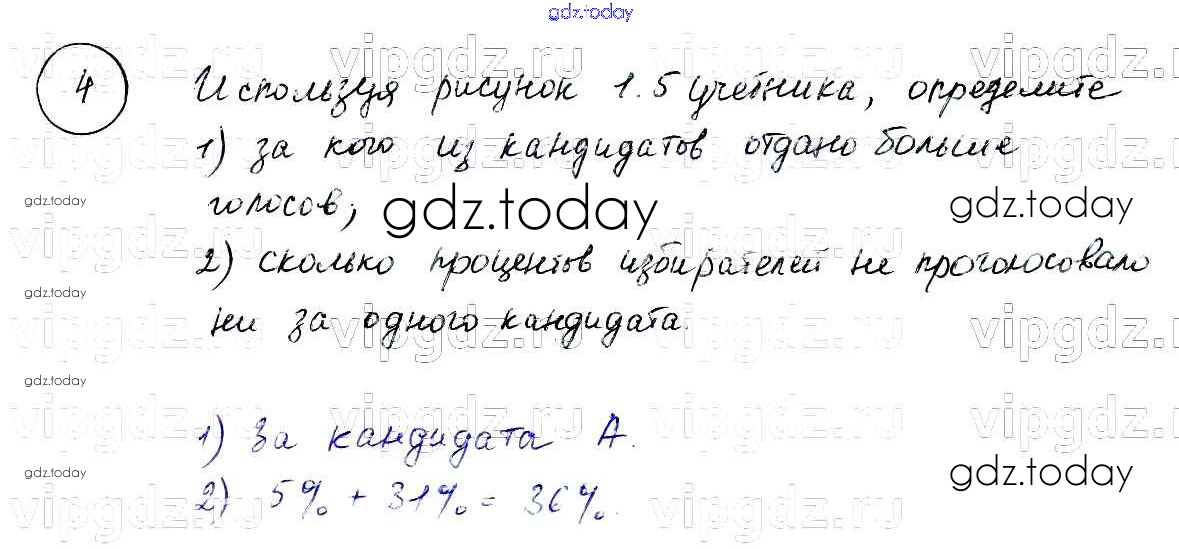 gdz.today
vipgdz.ru vipgdz.ru vipgdz.ru vipgdz.ru
4 Используя рисунок 1.5 учебника, определите
1) за кого из кандидатов отдано больше
vipgdz.ru vipgdz.ru vipgdz.ru vipgdz.ru
gdz.today голосов; gdz.today gdz.today
vipgdz.ru vipgdz.ru vipgdz.ru vipgdz.ru
2) сколько процентов избирателей не проголосовало
gdz.today
ни за одного кандидата.
vipgdz.ru vipgdz.ru vipgdz.ru vipgdz.ru
gdz.today
vipgdz.ru vipgdz.ru vipgdz.ru vipgdz.ru
1) За кандидата А.
gdz.today gdz.today
2) 5% + 31% = 36%.
vipgdz.ru vipgdz.ru vipgdz.ru vipgdz.ru